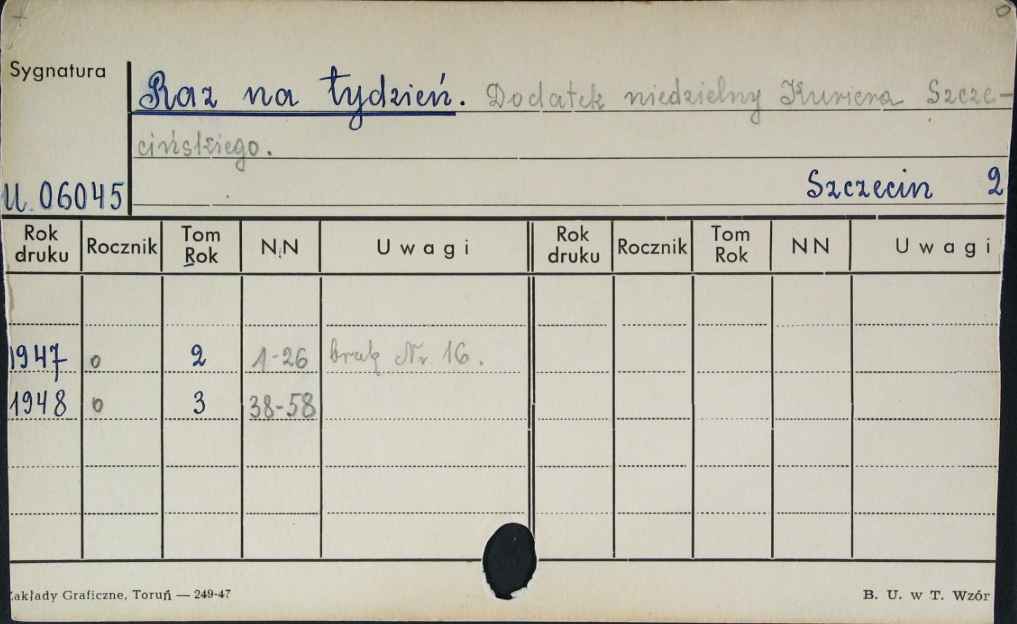 Sygnatura
Raz na tydzień. Dodatek niedzielny Kuriera Szcze-
cińskiego.
U. 06045
Szczecin 2
Rok druku Rocznik Tom Rok N.N Uwagi Rok druku Rocznik Tom Rok NN Uwagi
1947 0 2 1-26 brak Nr 16.
1948 0 3 38-58
akłady Graficzne, Toruń — 249-47
B. U. w T. Wzór